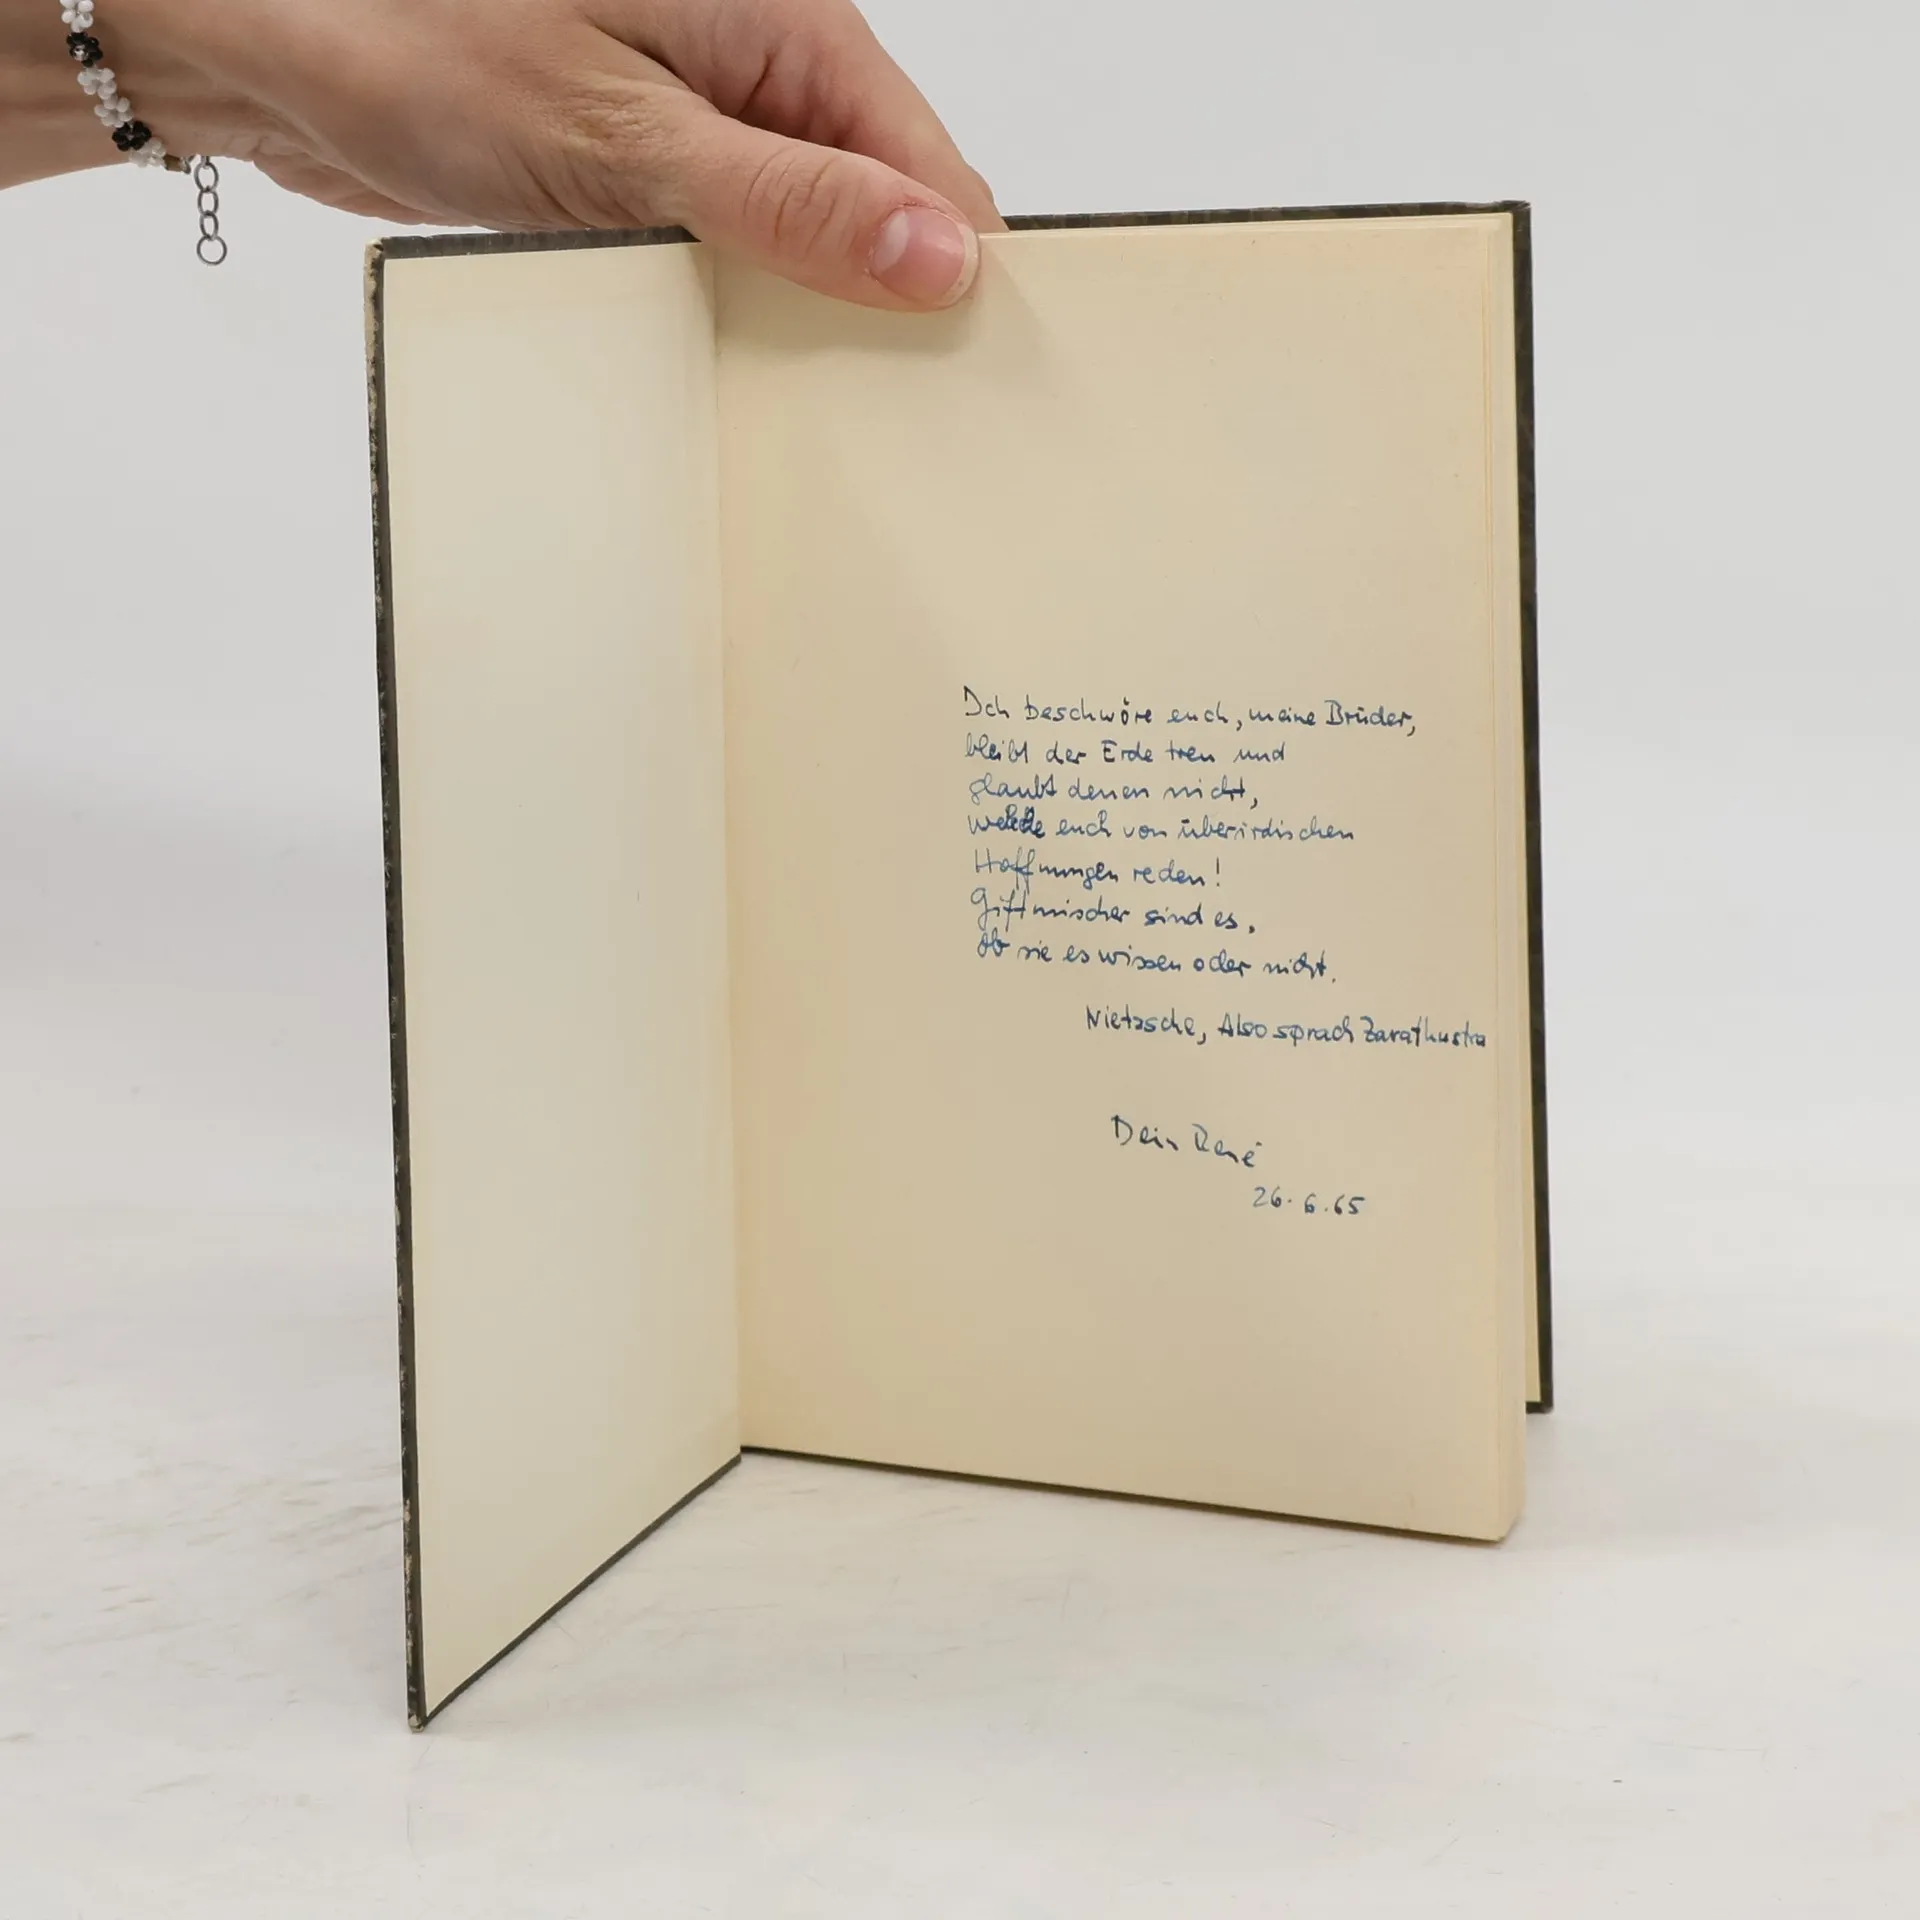 Ich beschwöre euch, meine Brüder,
bleibt der Erde treu und
glaubt denen nicht,
welche euch von überirdischen
Hoffnungen reden!
Giftmischer sind es,
ob sie es wissen oder nicht.
Nietzsche, Also sprach Zarathustra
Dein René
26.6.65